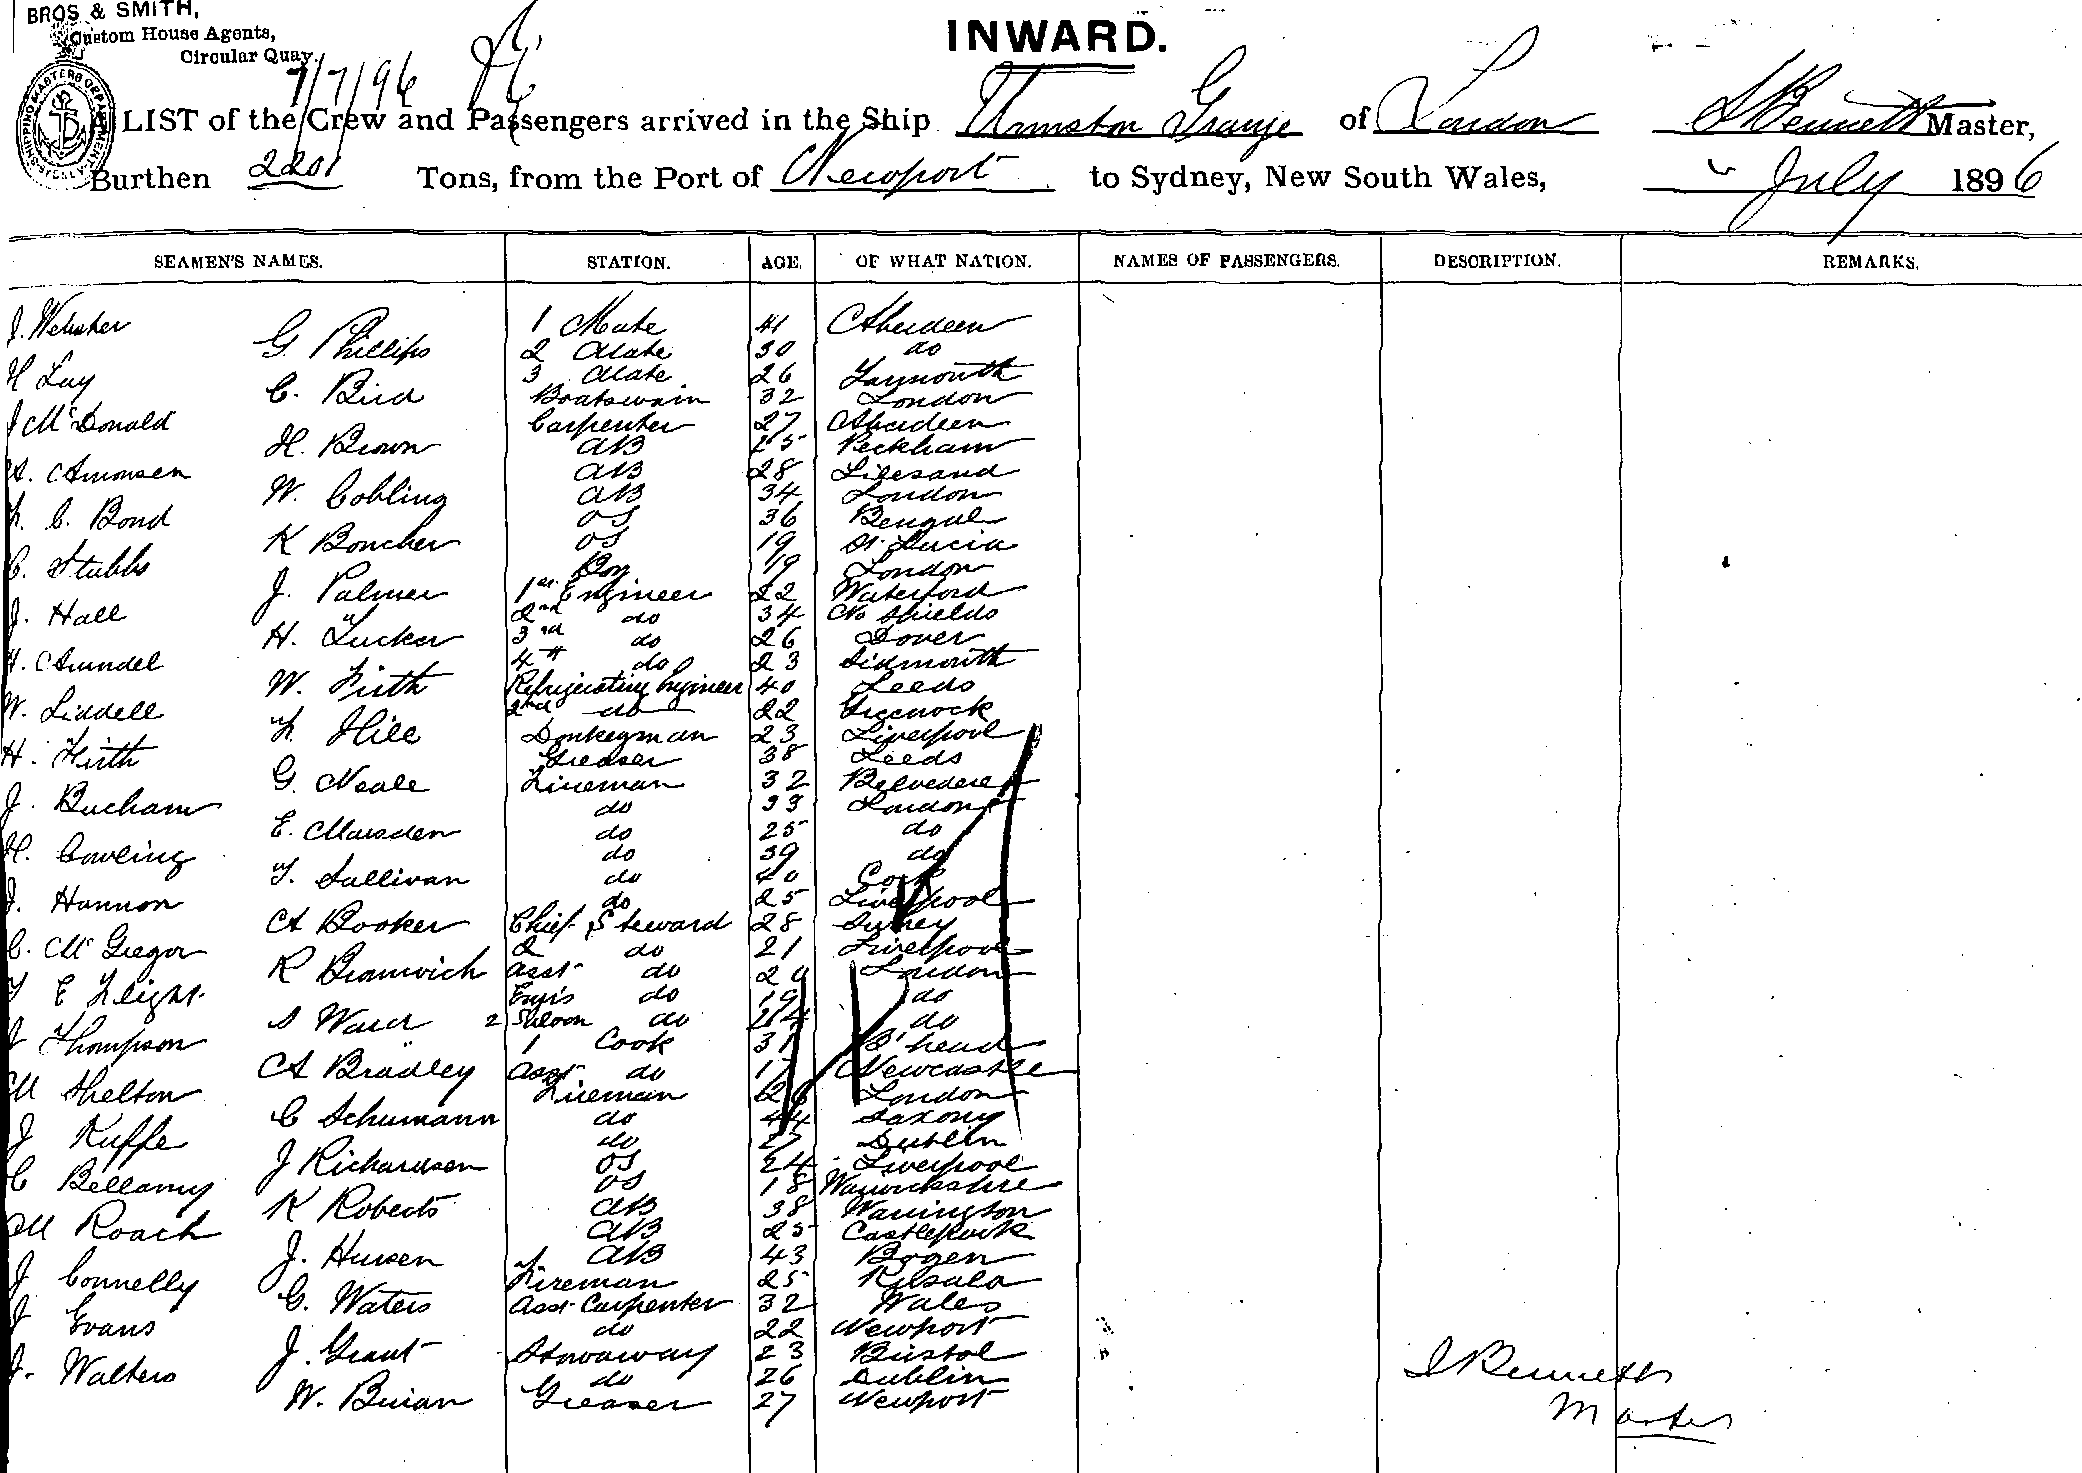 BROS & SMITH,
Custom House Agents,
Circular Quay.
7/7/96
INWARD.
LIST of the Crew and Passengers arrived in the Ship Urmston Grange of London S Bennett Master,
Burthen 2201 Tons, from the Port of Newport to Sydney, New South Wales, July 1896
SEAMEN'S NAMES. STATION. AGE. OF WHAT NATION. NAMES OF PASSENGERS. DESCRIPTION. REMARKS.
J. Webster 1 Mate 41 Aberdeen
G. Phillips 2 Mate 30 do
H Lay 3 Mate 26 Yarmouth
C. Bird Boatswain 32 London
J McDonald Carpenter 27 Aberdeen
H. Brown AB 25 Peckham
A. Amonsen AB 28 Lilesand
W. Cobling AB 34 London
C. Bond OS 36 Bengal
K Boncher OS 19 St Lucia
C. Stubbs Boy 19 London
J. Palmer 1st Engineer 22 Waterford
J. Hall 2nd do 34 No Shields
H. Tucker 3rd do 26 Dover
Arundel 4th do 23 Sidmouth
W. Firth Refrigerating Engineer 40 Leeds
W. Liddell 2nd do 22 Greenock
F. Hill Donkeyman 23 Liverpool
H. Firth Greaser 38 Leeds
G. Neale Fireman 32 Belvedere
J. Bucham do 33 London
E. Marsden do 25 do
H. Cowling do 39 do
T. Sullivan do 40 Cork
J. Hannon do 25 Liverpool
A Booker Chief Steward 28 Surrey
C. McGregor 2 do 21 Liverpool
R Bramwich Asst do London
E Leight Engrs do 19 do
S Ward 2 Saloon do 24 do
J Thompson 1 Cook 31 B'head
A Bradley Asst do 17 Newcastle
M Shelton Fireman London
C Schumann do 44 Saxony
J Kuffe do 27 Dublin
J Richardson OS 24 Liverpool
C Bellamy OS 18 Warwickshire
K Roberts AB 38 Warrington
M Roach AB 25 Castlepook
J. Hursen AB 43 Bogen
J Connelly Fireman 25 Kilsala
G. Waters Asst Carpenter 32 Wales
J Evans do 22 Newport
J. Grant Stowaway 23 Bristol
J. Walters do 26 Dublin
W. Burian Greaser 27 Newport
S Bennett
Master